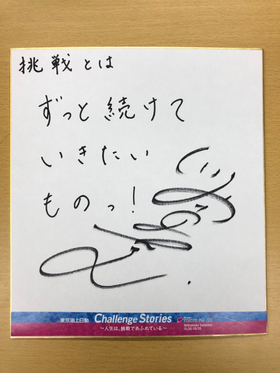 挑戦とは
ずっと続けて
いきたい
ものっ!
東京海上日動 Challenge Stories
〜人生は、挑戦であふれている〜